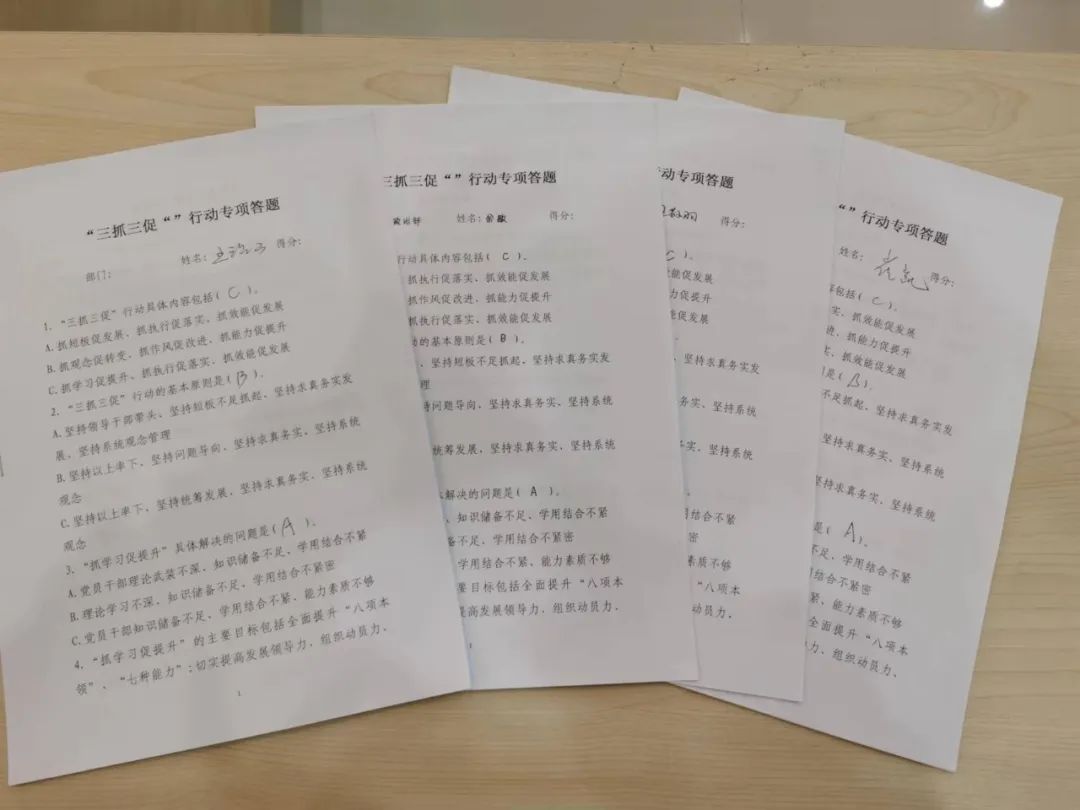 “三抓三促“”行动专项答题
部门： 姓名： 得分：
1. “三抓三促”行动具体内容包括( C )。
A. 抓短板促发展、抓执行促落实、抓效能促发展
B. 抓观念促转变、抓作风促改进、抓能力促提升
C. 抓学习促提升、抓执行促落实、抓效能促发展
2. “三抓三促”行动的基本原则是( B )。
A. 坚持领导干部带头、坚持短板不足抓起、坚持求真务实发
展、坚持系统观念管理
B. 坚持以上率下、坚持问题导向、坚持求真务实、坚持系统
观念
C. 坚持以上率下、坚持统筹发展、坚持求真务实、坚持系统
观念
3. “抓学习促提升”具体解决的问题是( A )。
A. 党员干部理论武装不深、知识储备不足、学用结合不紧
B. 理论学习不深、知识储备不足、学用结合不紧密
C. 党员干部知识储备不足、学用结合不紧、能力素质不够
4. “抓学习促提升”的主要目标包括全面提升“八项本
领”、“七种能力”；切实提高发展领导力、组织动员力、
1
三抓三促“”行动专项答题
姓名： 得分：
行动具体内容包括( C )。
抓执行促落实、抓效能促发展
抓作风促改进、抓能力促提升
抓执行促落实、抓效能促发展
的基本原则是( B )。
、坚持短板不足抓起、坚持求真务实发
理
问题导向、坚持求真务实、坚持系统
统筹发展、坚持求真务实、坚持系统
解决的问题是( A )。
、知识储备不足、学用结合不紧
备不足、学用结合不紧密
学用结合不紧、能力素质不够
要目标包括全面提升“八项本
提高发展领导力、组织动员力、
1
动专项答题
得分：
C )。
能促发展
力促提升
能促发展
坚持求真务实发
务实、坚持系统
实、坚持系统
学用结合不紧
结合不紧密
素质不够
“八项本
动员力、
“”行动专项答题
姓名： 得分：
容包括( C )。
实、抓效能促发展
进、抓能力促提升
实、抓效能促发展
是( B )。
不足抓起、坚持求真务实发
坚持求真务实、坚持系统
坚持求真务实、坚持系统
是( A )。
不足、学用结合不紧
结合不紧密
紧、能力素质不够
全面提升“八项本
力、组织动员力、
1